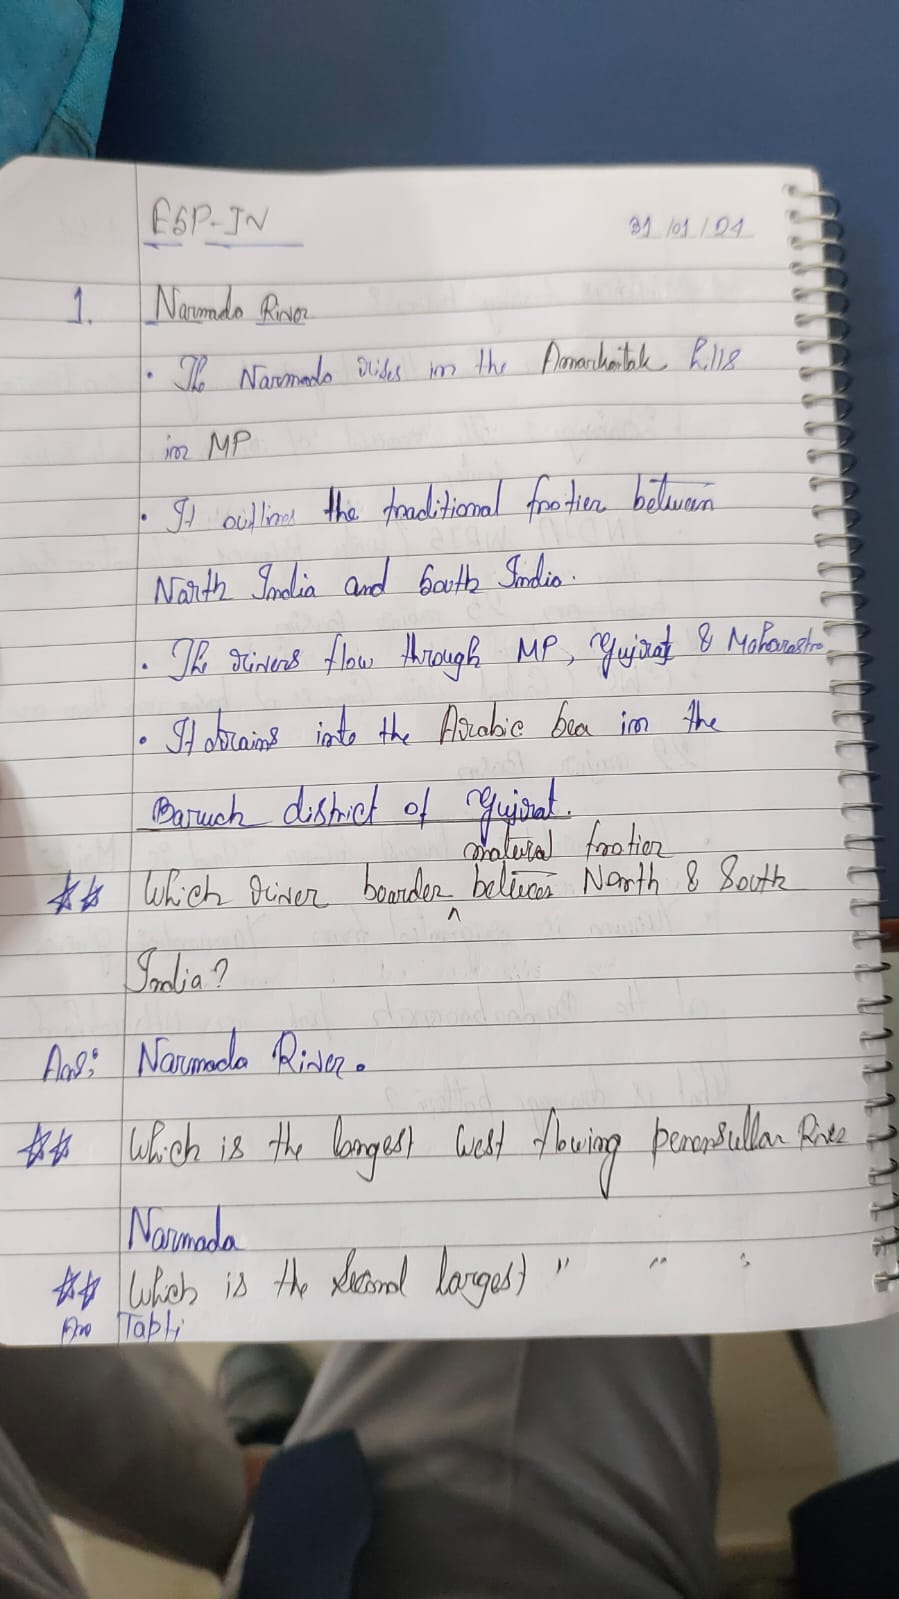 ESP-IN 31/01/24
1. Narmada River
• The Narmada rises in the Amarkantak hills
in MP
• It outlines the traditional frotier between
North India and South India.
• The rivers flow through MP, Gujrat & Maharastra
• It drains into the Arabic Sea in the
Baruch district of Gujrat.
natural frotier
☆☆ Which river boarder ^ between North & South
India?
Ans: Narmada River.
☆☆ Which is the longest west flowing penensullar River
Narmada
☆☆ Which is the second largest " " :
Ans Tapti